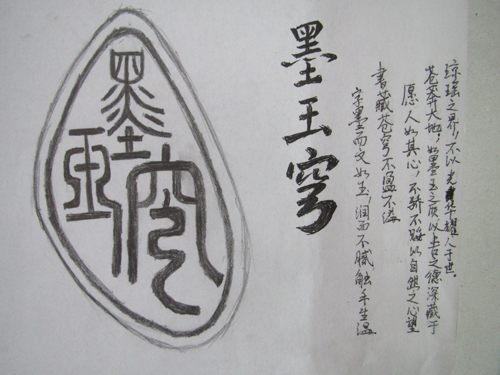 琼瑶之界,不以光华耀人于世.
苍莽大地,如墨玉之质,以上古之德深藏于
愿人如其心,不骄不躁以自之心望
書藏苍穹不盈不溢
字墨而文如玉,润而不腻触手生温
墨王穹
墨
穹